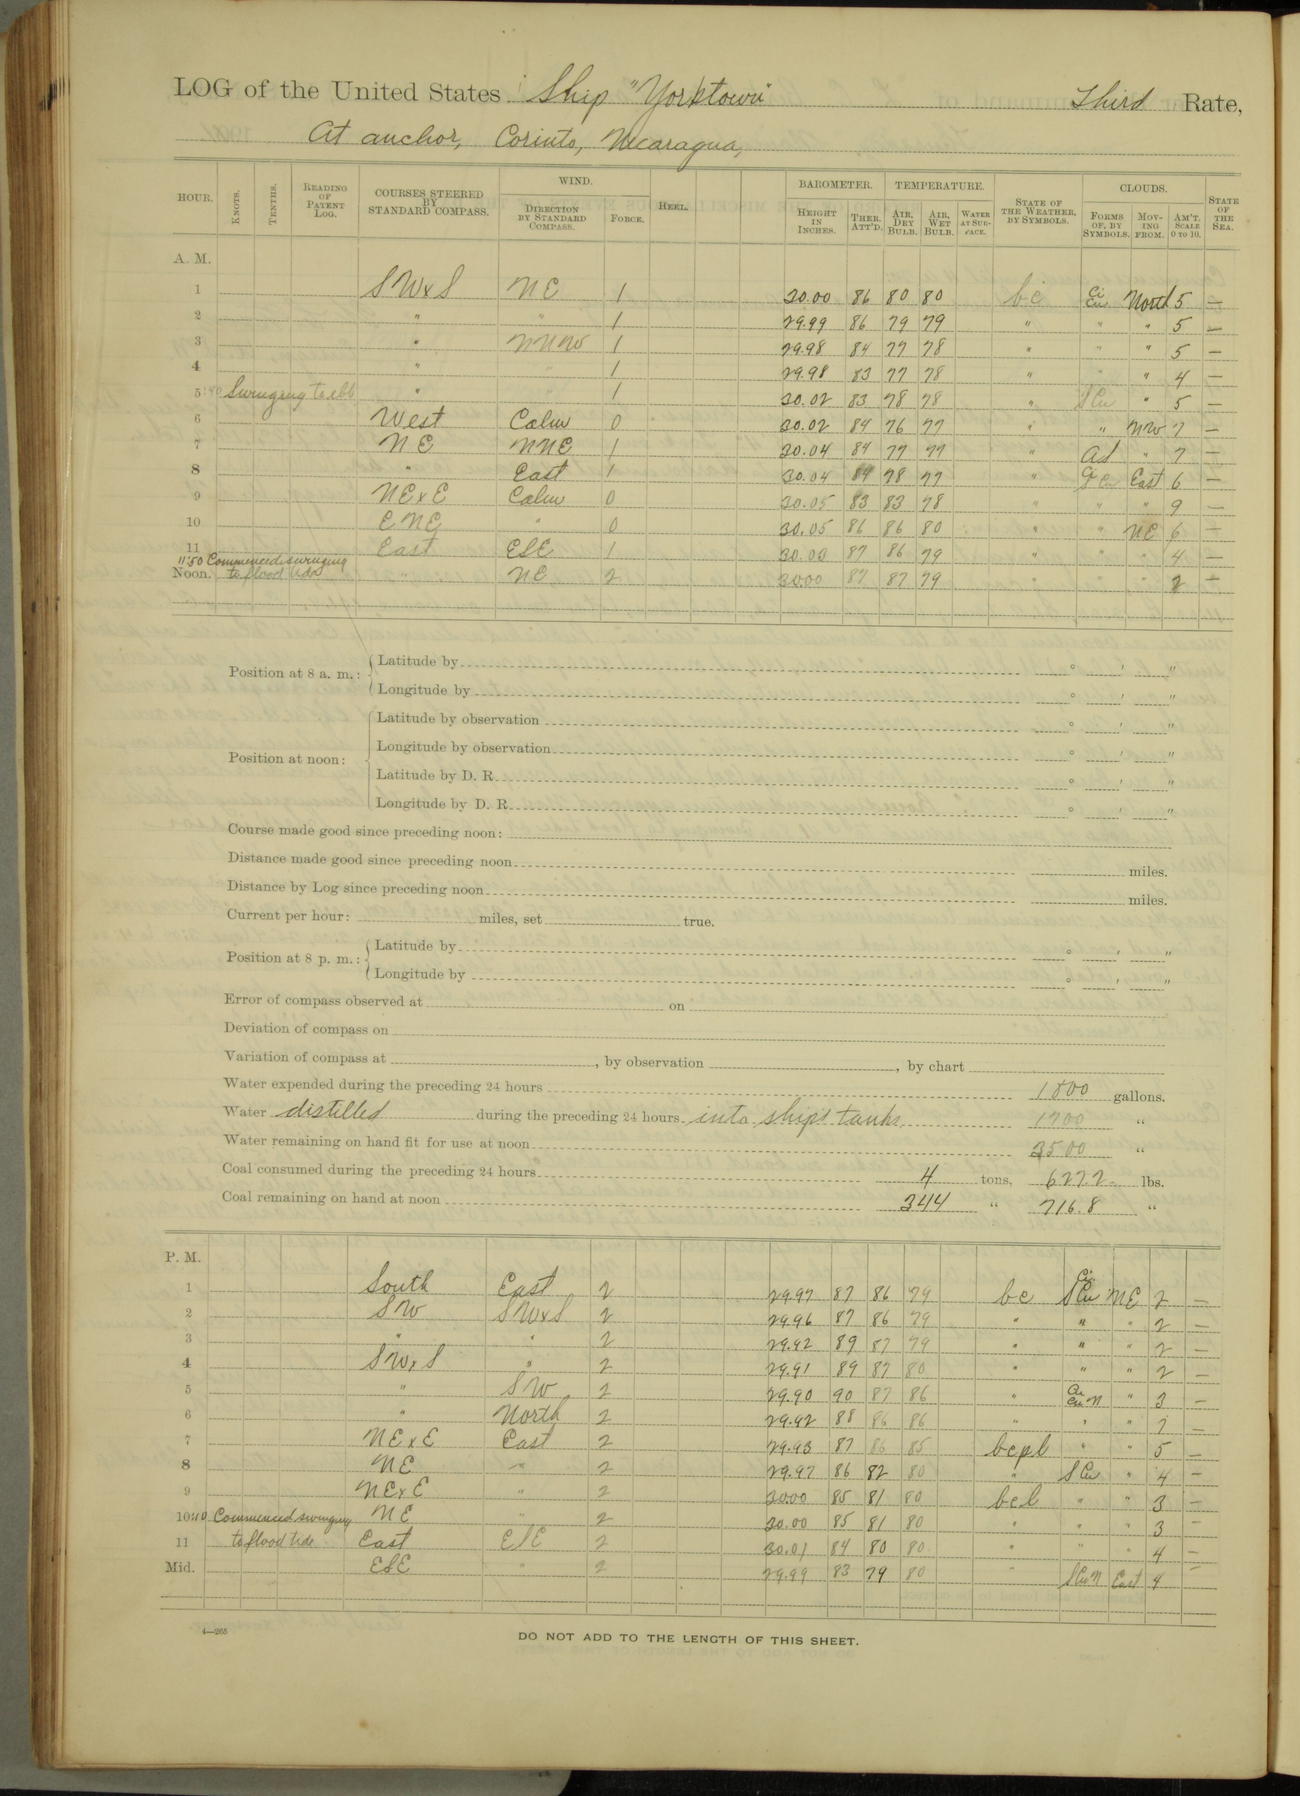 LOG of the United States Ship "Yorktown" Third Rate,
At anchor, Corinto, Nicaragua,
HOUR. KNOTS. TENTHS. READING OF PATENT LOG. COURSES STEERED BY STANDARD COMPASS. WIND. DIRECTION BY STANDARD COMPASS. FORCE. HEEL. BAROMETER. HEIGHT IN INCHES. THER. ATT'D. TEMPERATURE. AIR, DRY BULB. AIR, WET BULB. WATER AT SURFACE. STATE OF THE WEATHER, BY SYMBOLS. CLOUDS. FORMS OF, BY SYMBOLS. MOVING FROM. AM'T. SCALE 0 TO 10. STATE OF THE SEA.
A. M.
1 SWxS NE 1 30.00 86 80 80 bc Ci Cu North 5 —
2 " " 1 29.99 86 79 79 " " " 5 —
3 " NNW 1 29.98 84 77 78 " " " 5 —
4 " " 1 29.98 83 77 78 " " " 4 —
5:40 Swinging to ebb " " 1 30.02 83 78 78 " SCu " 5 —
6 West Calm 0 30.02 84 76 77 " " NW 7 —
7 NE NNE 1 30.04 84 77 77 " " 7 —
8 " East 1 30.04 84 78 77 " East 6 —
9 NExE Calm 0 30.05 83 83 78 " " " 9 —
10 ENE " 0 30.05 86 86 80 " " NE 6 —
11 East ESE 1 30.00 87 86 79 " " " 4 —
11:50 Commenced swinging
Noon. to flood tide " NE 2 30.00 87 87 79 " " " 2 —
Position at 8 a. m.: Latitude by ° ' "
Longitude by ° ' "
Position at noon: Latitude by observation ° ' "
Longitude by observation ° ' "
Latitude by D. R. ° ' "
Longitude by D. R. ° ' "
Course made good since preceding noon:
Distance made good since preceding noon miles.
Distance by Log since preceding noon miles.
Current per hour: miles, set true.
Position at 8 p. m.: Latitude by ° ' "
Longitude by ° ' "
Error of compass observed at on
Deviation of compass on
Variation of compass at , by observation , by chart
Water expended during the preceding 24 hours 1800 gallons.
Water distilled during the preceding 24 hours into ships tanks 1700 "
Water remaining on hand fit for use at noon 3500 "
Coal consumed during the preceding 24 hours 4 tons, 627.2 lbs.
Coal remaining on hand at noon 344 " 716.8 "
P. M.
1 South East 2 29.97 87 86 79 bc Ci SCu NE 2 —
2 SW SWxS 2 29.96 87 86 79 " " " 2 —
3 " " 2 29.92 89 87 79 " " " 2 —
4 SWxS " 2 29.91 89 87 80 " " " 2 —
5 " SW 2 29.90 90 87 86 " CuN " 3 —
6 " North 2 29.92 88 86 86 " " " 7 —
7 NExE East 2 29.93 87 86 85 bcpl " " 5 —
8 NE " 2 29.97 86 82 80 " SCu " 4 —
9 NExE " 2 30.00 85 81 80 bcl " " 3 —
10:40 Commenced swinging NE " 2 30.00 85 81 80 " " " 3 —
11 to flood tide East ESE 2 30.01 84 80 80 " " " 4 —
Mid. ESE " 2 29.99 83 79 80 " SCuN East 4 —
4—265
DO NOT ADD TO THE LENGTH OF THIS SHEET.